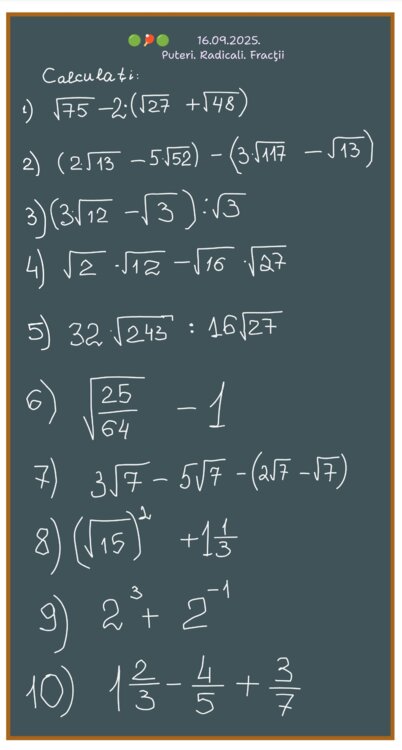 16.09.2025.
Puteri. Radicali. Fracții
Calculați:
1) √75 - 2·(√27 + √48)
2) (2√13 - 5√52) - (3·√117 - √13)
3) (3√12 - √3) : √3
4) √2 · √12 - √16 · √27
5) 32·√243 : 16√27
6) √(25/64) - 1
7) 3√7 - 5√7 - (2√7 - √7)
8) (√15)² + 1 1/3
9) 2³ + 2⁻¹
10) 1 2/3 - 4/5 + 3/7